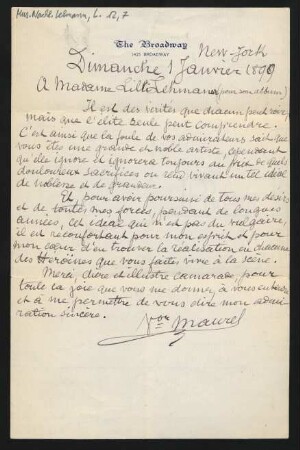 Mus. Nachl. Lehmann, L. 12, 7
The Broadway
1425 BROADWAY
New-York
Dimanche 1 Janvier 1899
A Madame Lilli Lehmann (pour son album)
Il est des vérités que chacun peut voir,
mais que l'élite seule peut comprendre.
C'est ainsi que la foule de vos admirateurs sait que
vous êtes une grande et noble artiste, cependant
qu'elle ignore et ignorera toujours au prix de quels
douloureux sacrifices on reste vivant un tel idéal
de noblesse et de grandeur.
Et, pour avoir poursuivi de tous mes désirs
et de toutes mes forces, pendant de longues
années, cet idéal qui n'est pas du vulgaire,
il est réconfortant pour mon esprit et pour
mon cœur d'en trouver la réalisation en chacune
des Héroïnes que vous faites vivre à la scène.
Merci, chère et illustre camarade, pour
toute la joie que vous me donnez, à vous entendre
et à me permettre de vous dire mon admi-
ration sincère.
Vor Maurel